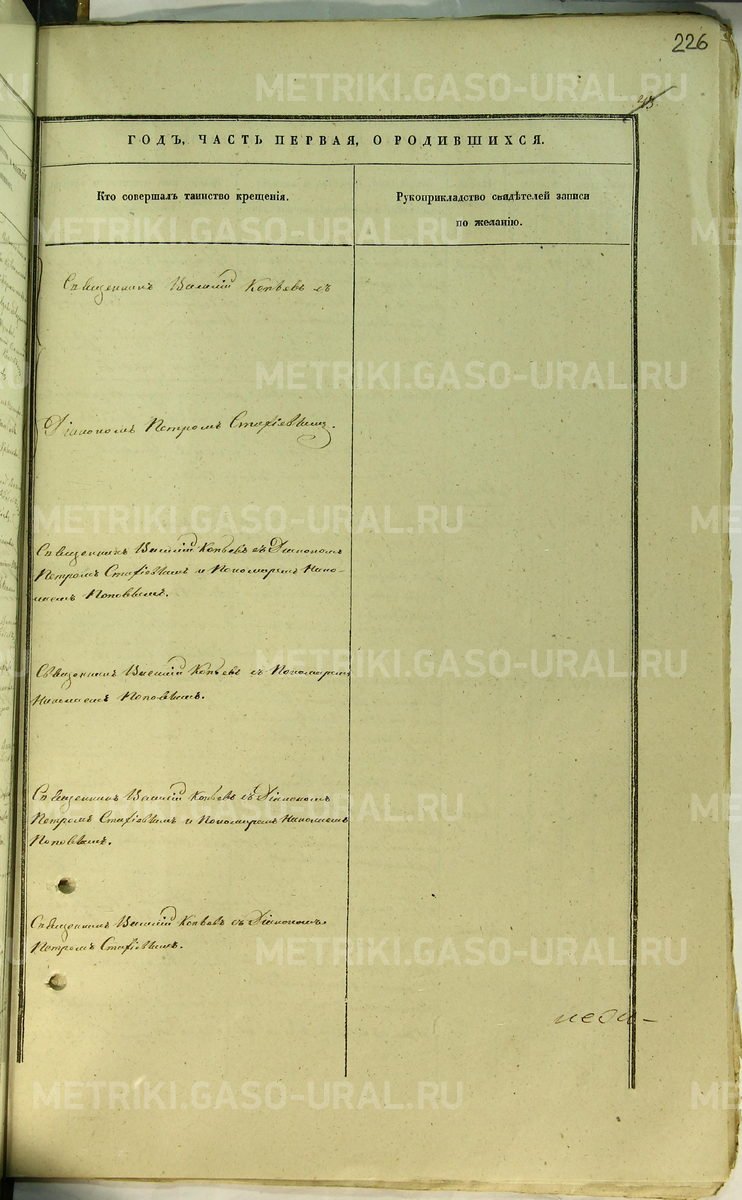 226
43.
ГОДЪ, ЧАСТЬ ПЕРВАЯ, О РОДИВШИХСЯ.
Кто совершалъ таинство крещенія.
Рукоприкладство свидѣтелей записи
по желанію.
Священникъ Василій Копѣевъ съ
Діакономъ Петромъ Стафіевымъ.
Священникъ Василій Копѣевъ съ Діакономъ
Петромъ Стафіевымъ и Пономаремъ Нико-
лаемъ Поповымъ.
Священникъ Василій Копѣевъ съ Пономаремъ
Николаемъ Поповымъ.
Священникъ Василій Копѣевъ съ Діакономъ
Петромъ Стафіевымъ и Пономаремъ Николаемъ
Поповымъ.
Священникъ Василій Копѣевъ съ Діакономъ
Петромъ Стафіевымъ.
METRIKI.GASO-URAL.RU